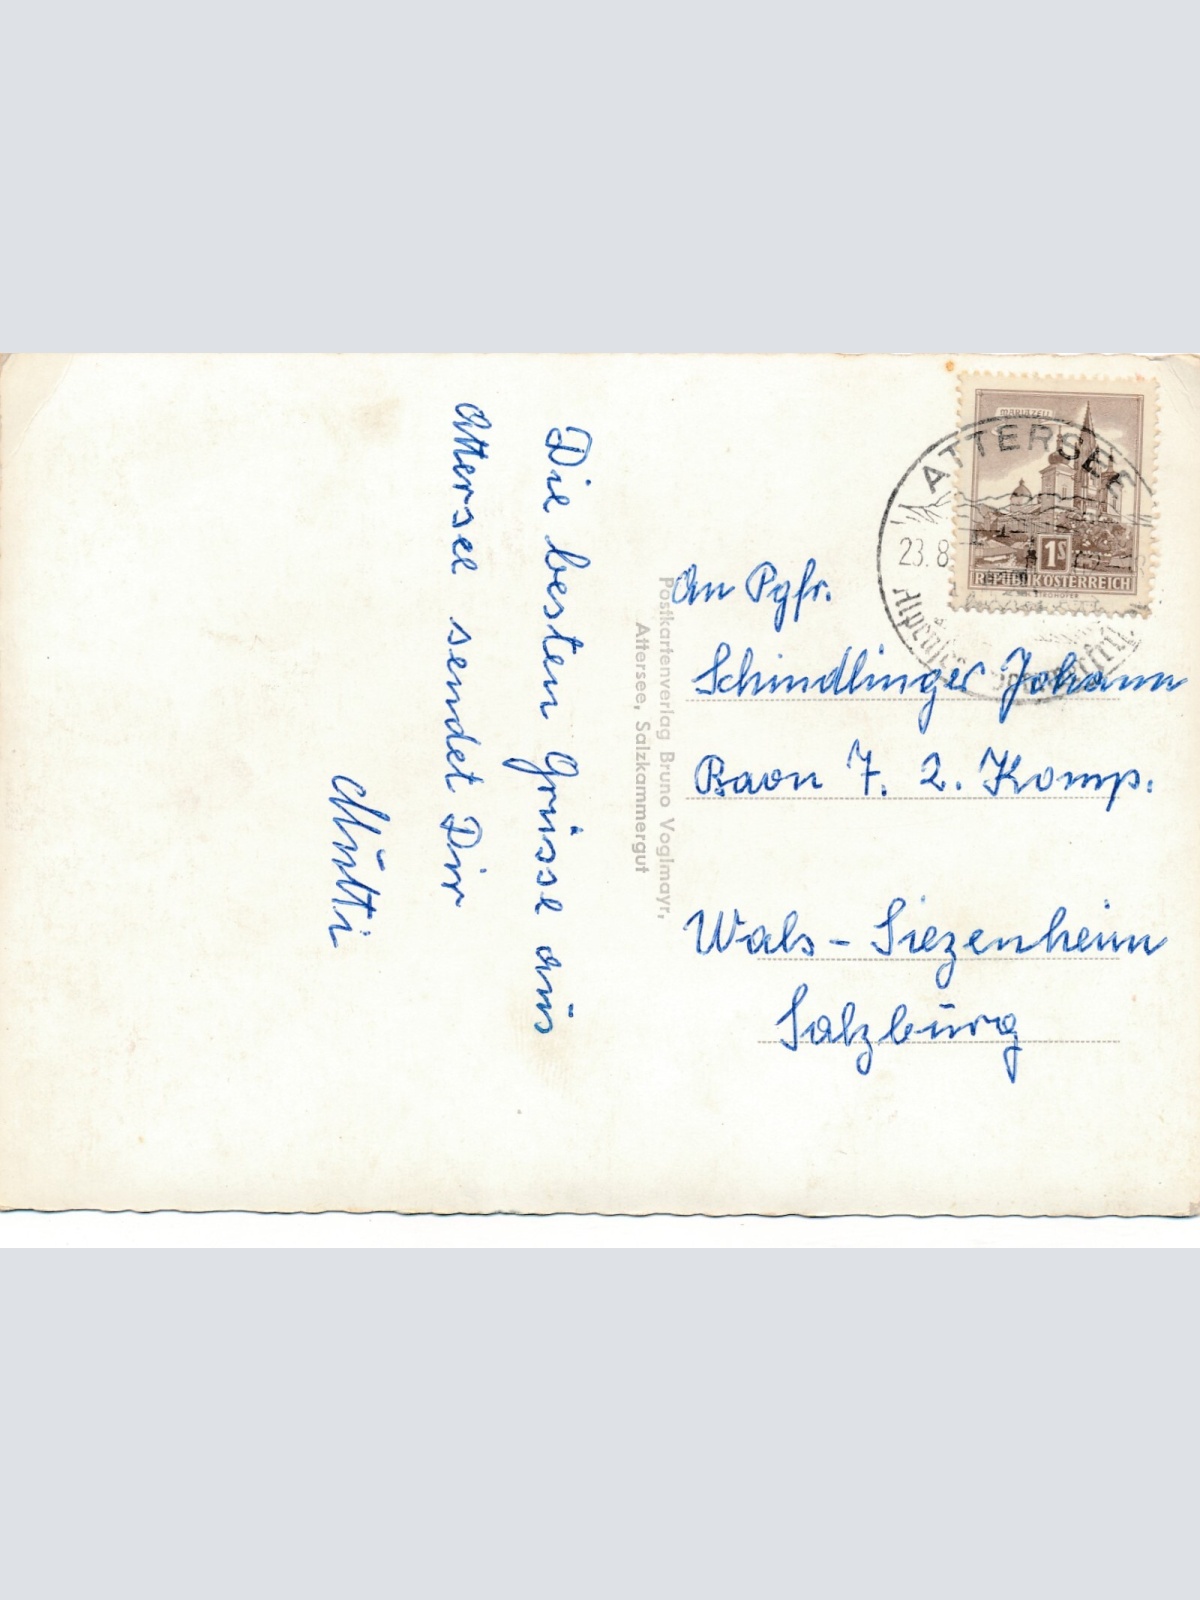 Die besten Grüsse aus
Attersee sendet Dir
Mutti
Postkartenverlag Bruno Voglmayr,
Attersee, Salzkammergut
MARIAZELL
1S
REPUBLIK ÖSTERREICH
ATTERSEE
23.8
An Pgfr.
Schindlinger Johann
Baon 7. 2. Komp.
Wals - Siezenheim
Salzburg